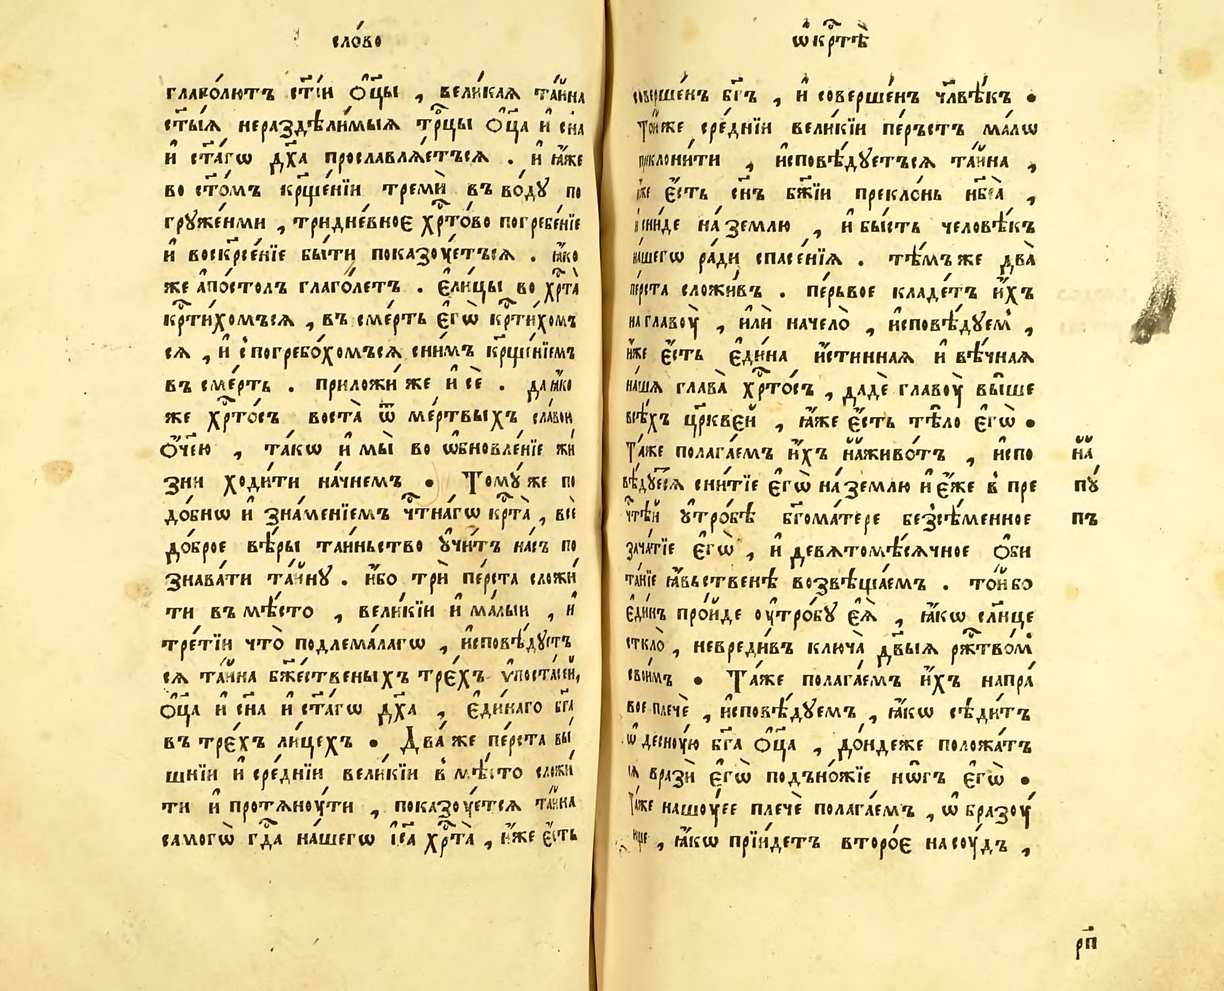 сло́во
глаголютъ ст҃і́и ѻ҆ц҃ы , вели́каѧ та́йна
ст҃ы́ѧ нераздѣли́мыѧ трⷪ҇цы ѻ҆ц҃а и҆ сн҃а
и҆ ст҃а́гѡ дх҃а прославлѧ́етъсѧ . и҆ ꙗ҆́же
во ст҃о́мъ крщ҃е́нїи тремѝ въ во́дꙋ по
грꙋже́нми , тридне́вное хрⷭ҇то́во погребе́нїе
и҆ воскрⷭ҇е́нїе бы́ти показꙋ́етъсѧ . ꙗ҆́ко
же а҆по́столъ глаго́летъ . є҆ли́цы во хрⷭ҇та̀
крⷭ҇ти́хомъсѧ , въ сме́рть є҆гѡ̀ крⷭ҇ти́хом
сѧ , и҆ спогребо́хомъсѧ сни́мъ крщ҃е́нїемъ
въ сме́рть . приложи́ же и҆ сѐ . да ꙗ҆́ко
же хрⷭ҇то́съ воста̀ ѿ ме́ртвыхъ сла́вои
ѻ҆́ч҃ею , та́кѡ и҆ мы̀ во ѡ҆бновле́нїе жи
зни ходи́ти на́чнемъ • Томꙋ́ же по
до́бнѡ и҆ зна́менїемъ чтⷭ҇на́гѡ крⷭ҇та̀ , всѐ
до́брое вѣ́ры таи́ньство ᲂу҆чи́тъ на́съ по
знава́ти та́йнꙋ . и҆́бо трѝ пе́рста сложи́
ти въ мѣ́сто , вели́кїи и҆ ма́лыи , и҆
тре́тїи что̀ подлема́лагѡ , и҆сповѣ́дꙋетъ
сѧ та́йна бж҃е́ственыхъ тре́хъ ѵ҆поста́сеи,
ѻ҆ц҃а и҆ сн҃а и҆ ст҃а́гѡ дх҃а , є҆ди́наго бг҃а
въ тре́хъ ли́цехъ • Два́ же пе́рста вы́
шнїи и҆ сре́днїи вели́кїи в мѣ́сто сложи́
ти и҆ протѧнꙋ́ти , показꙋ́етсѧ та́йна
самогѡ̀ гдⷭ҇а на́шегѡ і҆с҃а хрⷭ҇та̀ , и҆́же є҆́сть
ѡ҆ крⷭ҇тѣ̀
соверше́нъ бг҃ъ , и҆ соверше́нъ чл҃вѣ́къ •
То́йже сре́днїи вели́кїи пе́рьстъ ма́лѡ
приклони́ти , и҆сповѣ́дꙋетъсѧ та́йна ,
и҆́же є҆́сть сн҃ъ бж҃їи прекло́нь нб҃са̀ ,
и҆ сни́де на зе́млю , и҆ бы́сть человѣ́къ
на́шегѡ ра́ди спасе́нїѧ . тѣ́мъ же два̀
пе́рста сложи́въ . пе́рьвое кладе́тъ и҆́хъ
на главꙋ̀ , и҆лѝ начело̀ , и҆сповѣ́дꙋем ,
и҆́же є҆́сть є҆ди́на и҆́стиннаѧ и҆ вѣ́чнаѧ
на́ша глава̀ хрⷭ҇то́съ , дадѐ главꙋ̀ вы́ше
всѣ́хъ цр҃кве́й , ꙗ҆́же є҆́сть тѣ́ло є҆гѡ̀ •
Та́же полага́емъ и҆́хъ на живо́тъ , и҆спо
вѣ́дꙋесѧ сни́тїе є҆гѡ̀ на зе́млю и҆ є҆́же в пре
чтⷭ҇ѣи ᲂу҆тро́бѣ бг҃ома́тере безсѣ́менное
зача́тїе є҆гѡ̀ , и҆ девѧтомѣ́сѧчное ѻ҆би
та́нїе ꙗ҆́вьственѣ возвѣща́емъ . то́й бо
є҆ди́нъ про́йде ᲂу҆тро́бꙋ є҆ѧ̀ , ꙗ҆́кѡ сл҃нце
сткло̀ , невреди́въ ключа̀ дв҃ыѧ рж҃тво́м
свои́мъ • Та́же полага́емъ и҆́хъ на пра́
вое плечѐ , и҆сповѣ́дꙋемъ , ꙗ҆́кѡ сѣди́тъ
ѡ҆ деснꙋ́ю бг҃а ѻ҆ц҃а , до́ндеже положа́тъ
сѧ вразѝ є҆гѡ̀ подъно́жїе но́гъ є҆гѡ̀ •
Та́же на шꙋ́ее плечѐ полага́емъ , ѡ҆бразꙋ́
, ꙗ҆́кѡ прїи́детъ второ́е на сꙋ́дъ ,
на
пꙋ
пъ
рп҃